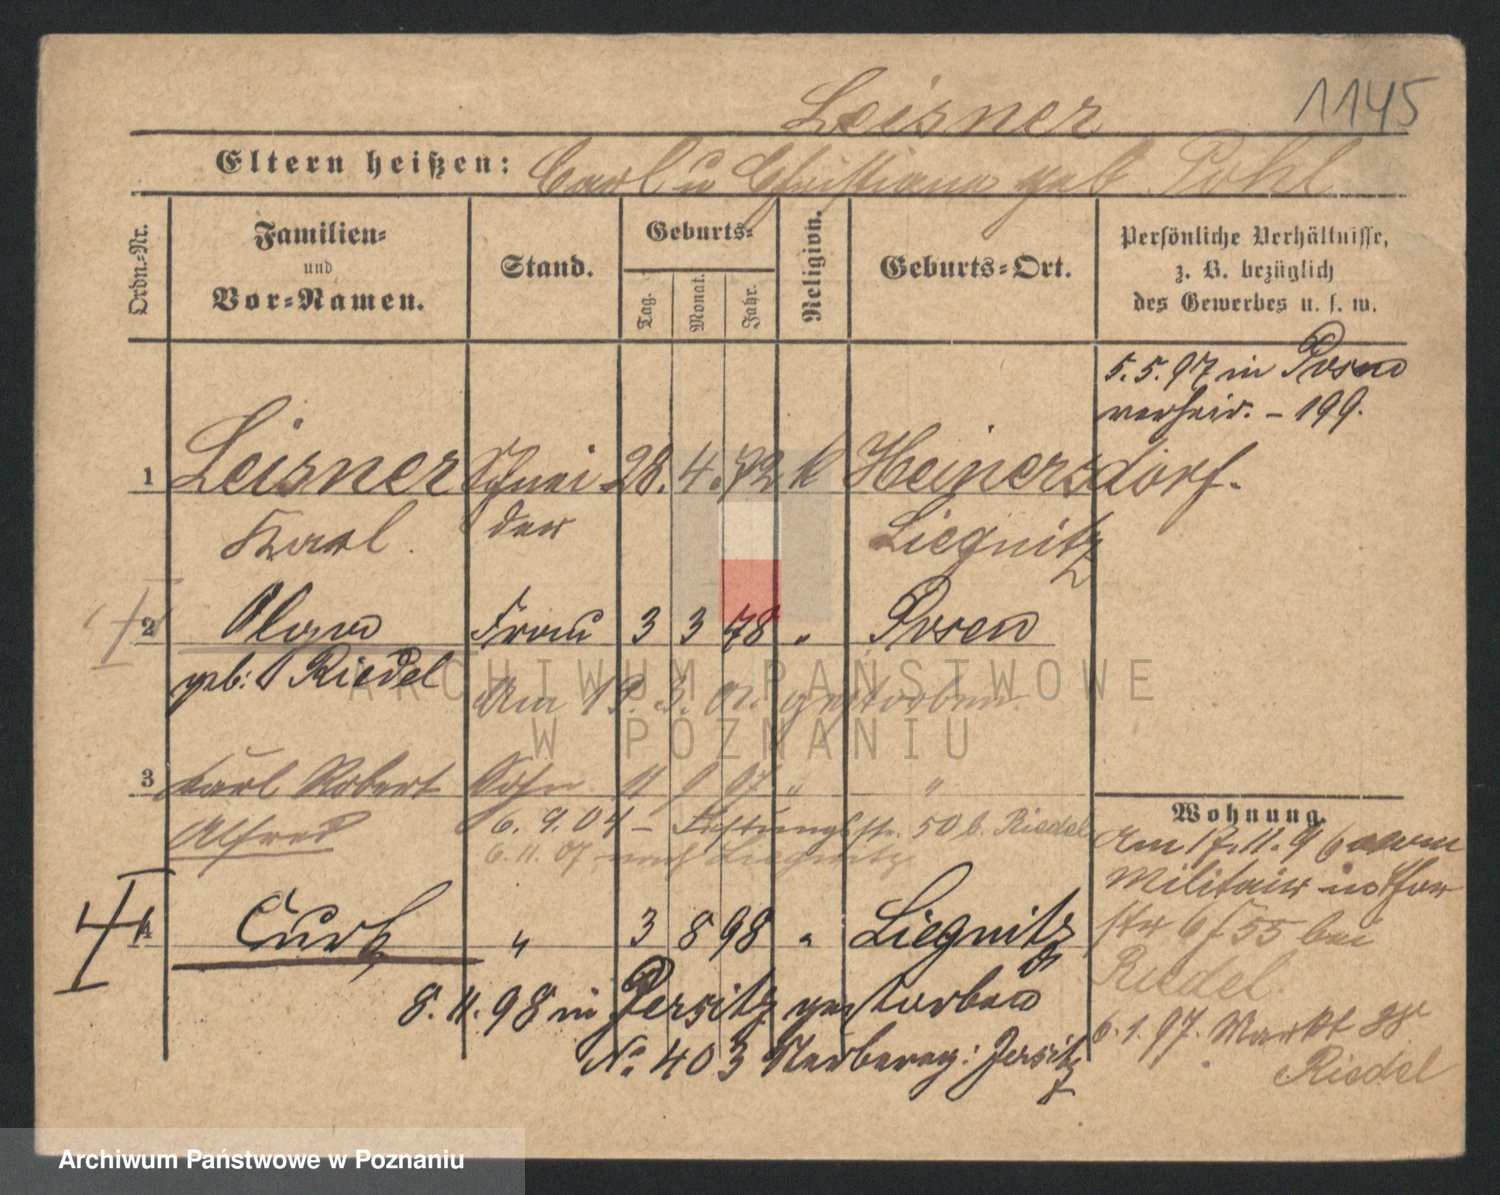 1145
Leisner
Eltern heißen: Carl u Christiane geb. Pohl
Ordn.=Nr.
Familien=
und
Vor=Namen.
Stand.
Geburts=
Tag.
Monat.
Jahr.
Religion.
Geburts=Ort.
Persönliche Verhältnisse,
z. B. bezüglich
des Gewerbes u. s. w.
5.5.97 in Posen
verheir. - 199.
1 Leisner Schnei 28. 4. 72 k Heinersdorf.
Karl. der Liegnitz
2 Frau 3 3 78 " Posen
geb: Riedel
Am 19. 3. 01. gestorben.
3 Karl Robert Sohn 11 9 97 " "
Alfred 6. 9. 04 - 50 b. Riedel
6. 11. 07 nach Liegnitz
4 Curt " 3 8 98 " Liegnitz
8. 11. 98 in Jersitz gestorben
No 403 Sterbereg: Jersitz
Wohnung.
Am 17. 11. 96 vom
Militair
55 bei
Riedel.
6. 1. 97. Markt
Riedel
ARCHIWUM PAŃSTWOWE
W POZNANIU
Archiwum Państwowe w Poznaniu